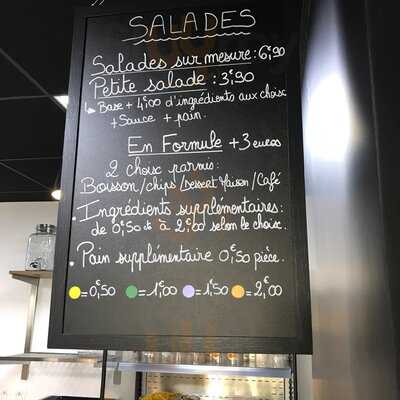 SALADES
Salades sur mesure : 6€,90
Petite salade : 3€,90
Base + 4€00 d'ingrédients aux choix
+ Sauce + pain.
En Formule + 3 euros
2 choix parmis :
Boisson / chips / Dessert Maison / Café
• Ingrédients supplémentaires :
de 0€,50 à 2€00 selon le choix.
• Pain supplémentaire 0€,50 pièce.
= 0€,50 = 1€00 = 1€,50 = 2€,00